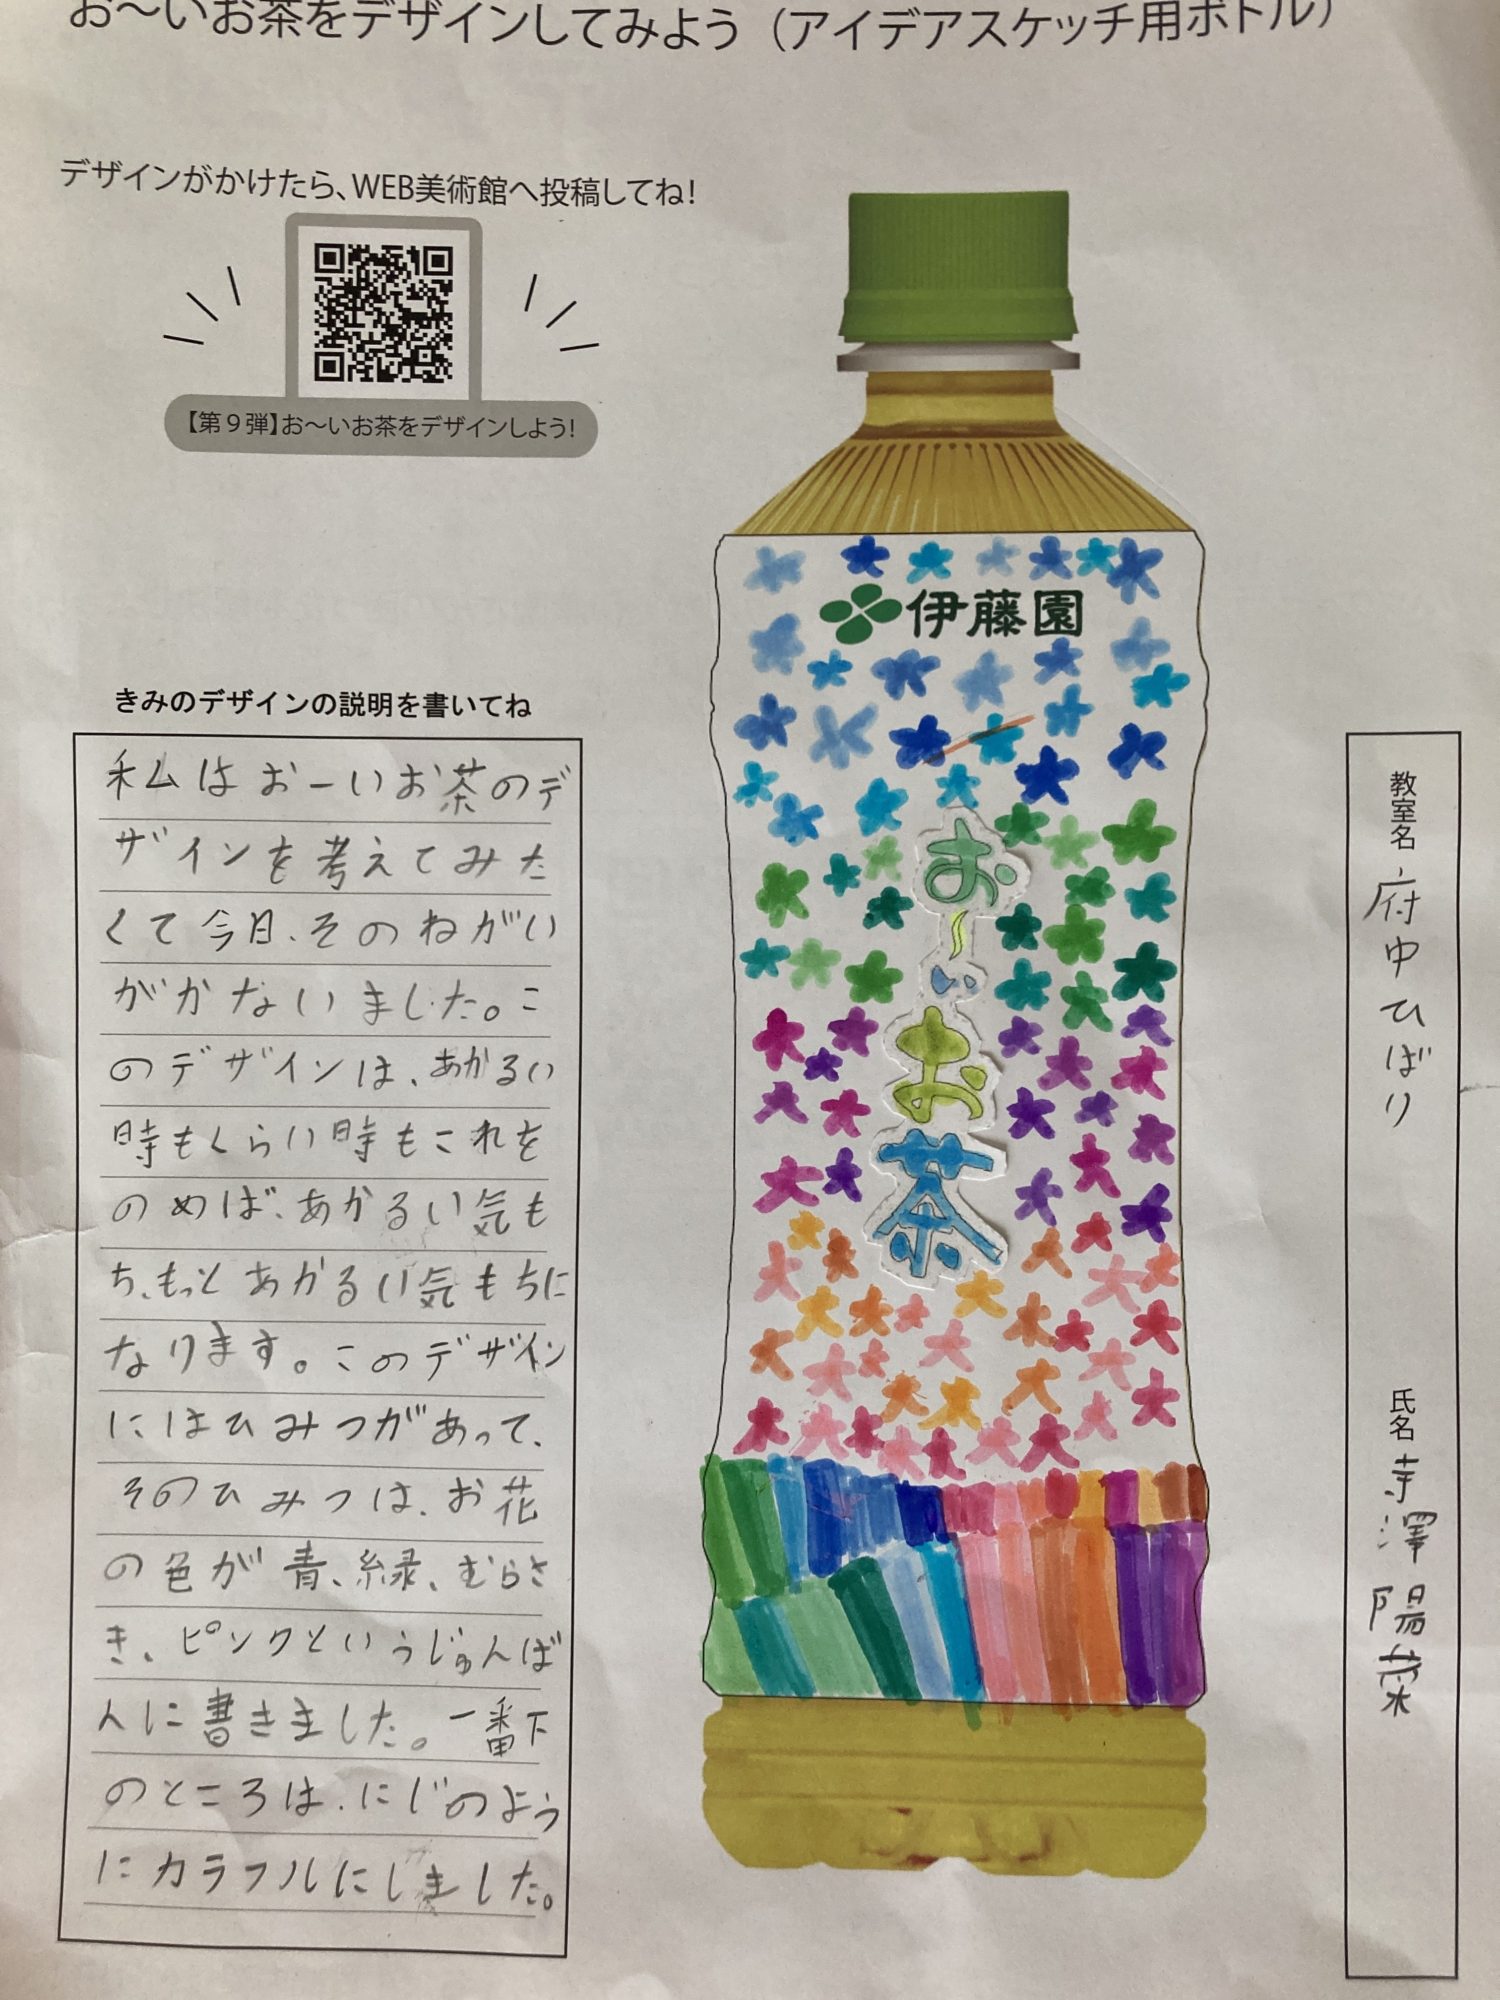 お〜いお茶をデザインしてみよう（アイデアスケッチ用ボトル）
デザインがかけたら、WEB美術館へ投稿してね！
【第９弾】お〜いお茶をデザインしよう！
伊藤園
お〜いお茶
きみのデザインの説明を書いてね
私はおーいお茶のデ
ザインを考えてみた
くて今日、そのねがい
がかないました。こ
のデザインは、あかるい
時もくらい時もこれを
のめば、あかるい気も
ち、もっとあかるい気もちに
なります。このデザイン
にはひみつがあって、
そのひみつは、お花
の色が青、緑、むらさ
き、ピンクというじゅんば
んに書きました。一番下
のところは、にじのよう
にカラフルにしました。
教室名 府中ひばり
氏名 寺澤 陽菜